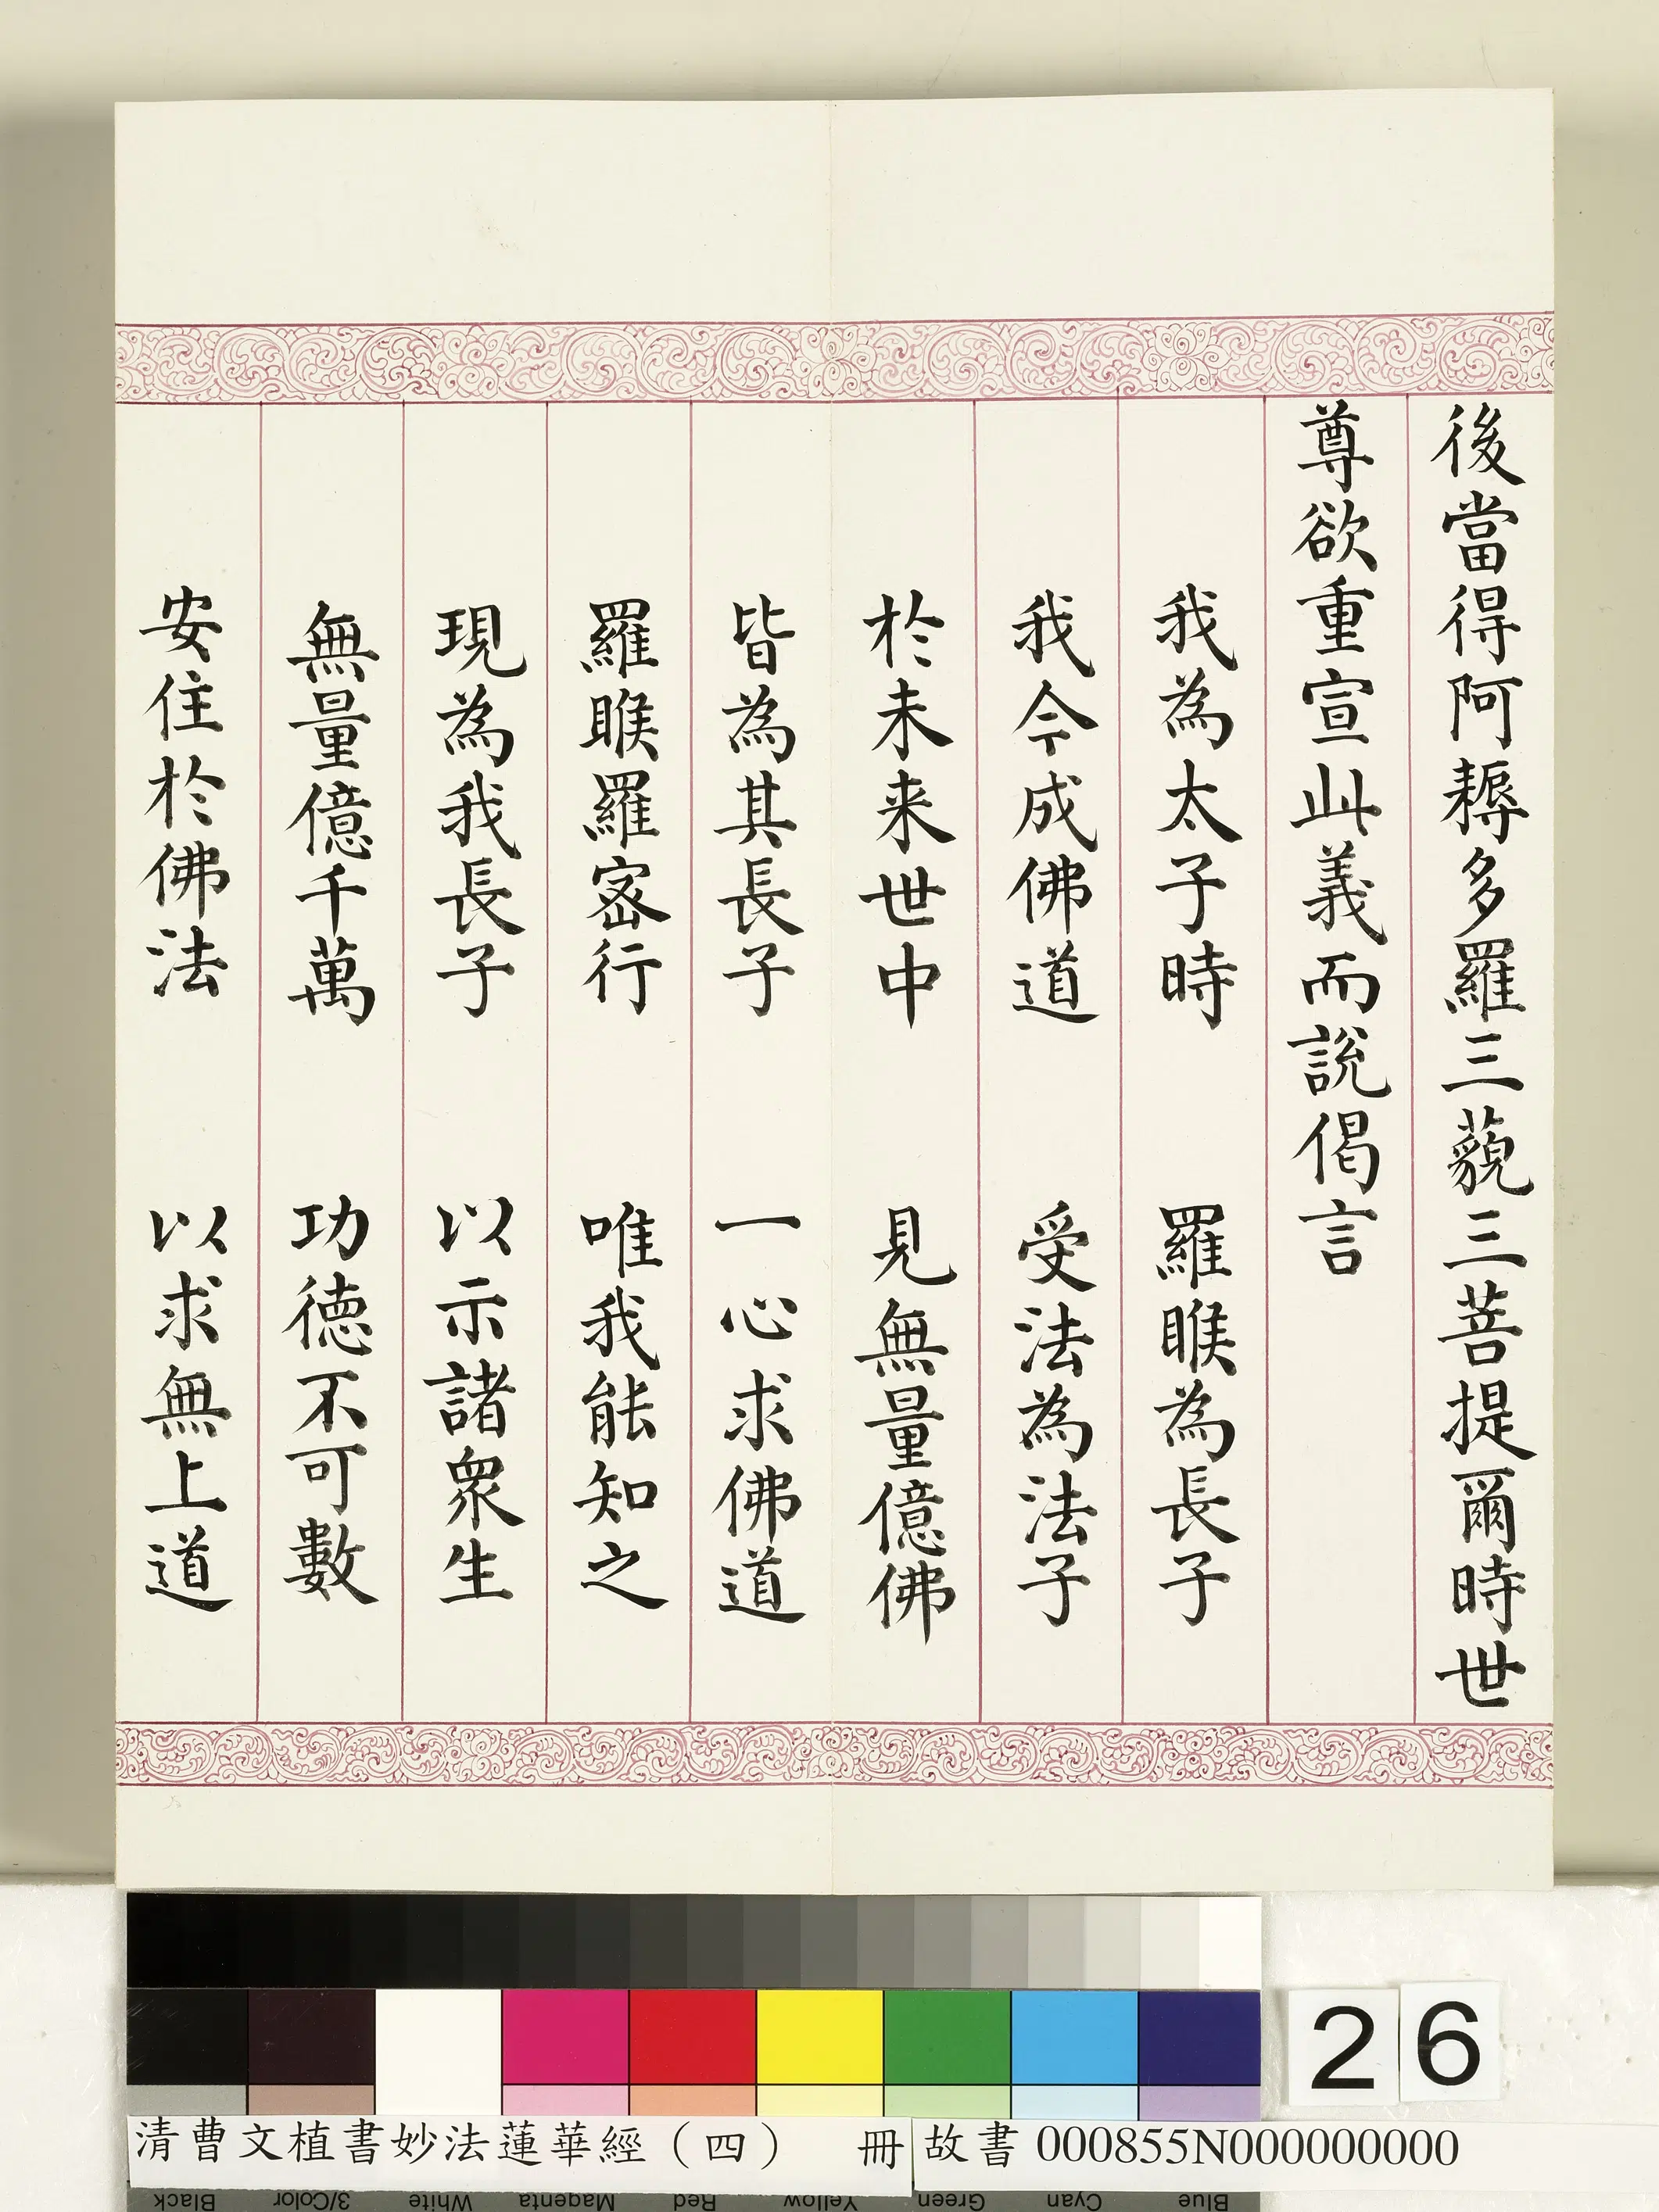 後當得阿耨多羅三藐三菩提爾時世
尊欲重宣此義而說偈言
我為太子時　羅睺為長子
我今成佛道　受法為法子
於未来世中　見無量億佛
皆為其長子　一心求佛道
羅睺羅密行　唯我能知之
現為我長子　以示諸眾生
無量億千萬　功德不可數
安住於佛法　以求無上道
26
清曹文植書妙法蓮華經（四）　冊
故書 000855N000000000
Black 3/Color White Magenta Red Yellow Green Cyan Blue